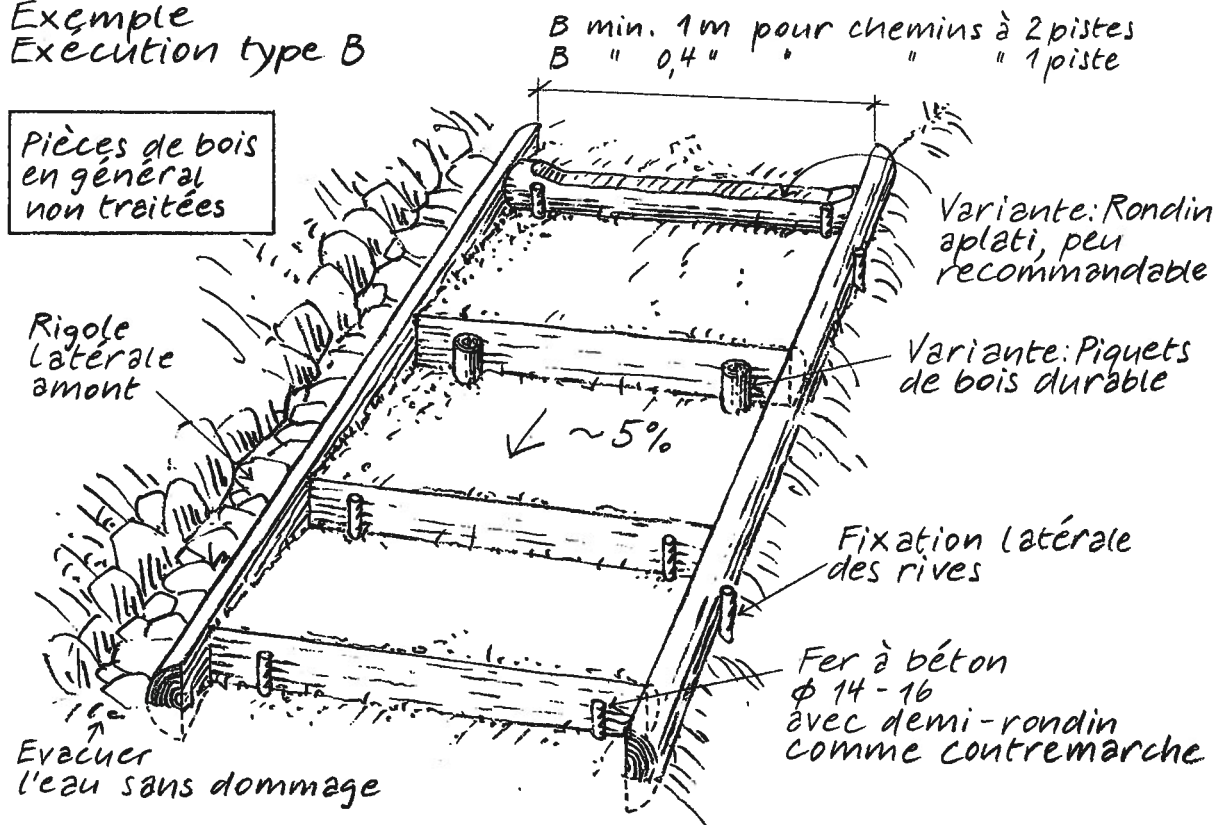 Exemple
Exécution type B
B min. 1m pour chemins à 2 pistes
B " 0,4 " " " " 1 piste
Pièces de bois
en général
non traitées
Variante: Rondin
aplati, peu
recommandable
Rigole
latérale
amont
Variante: Piquets
de bois durable
~5%
Fixation latérale
des rives
Fer à béton
φ 14 - 16
avec demi-rondin
comme contremarche
Evacuer
l'eau sans dommage